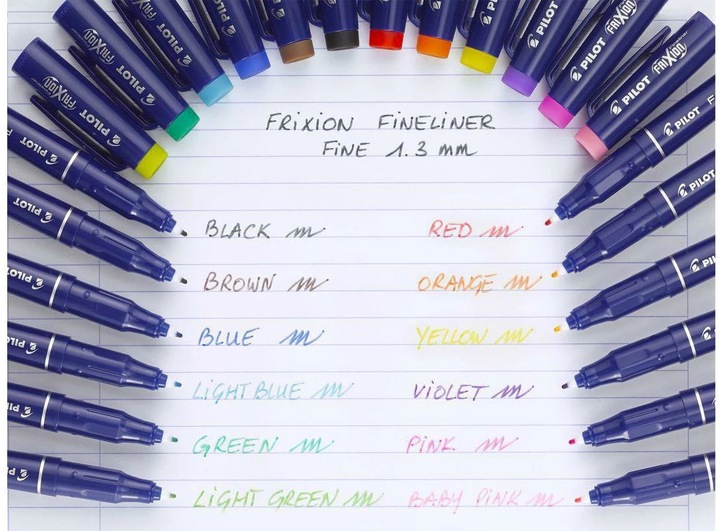 PILOT FRIXION
PILOT FRIXION
PILOT
PILOT
PILOT
PILOT FRIXION
PILOT FRIXION
FRIXION FINELINER
FINE 1.3 mm
BLACK
RED
BROWN
ORANGE
BLUE
YELLOW
LIGHT BLUE
VIOLET
GREEN
PINK
LIGHT GREEN
BABY PINK
PILOT
PILOT
PILOT
PILOT
PILOT
PILOT
PILOT
PILOT
PILOT
PILOT
PILOT
PILOT